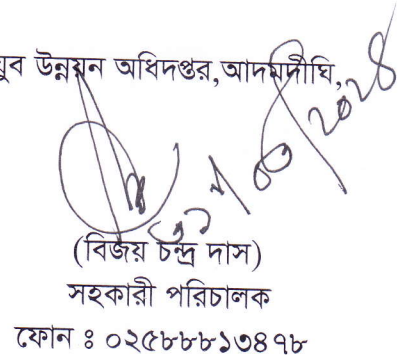 যুব উন্নয়ন অধিদপ্তর,আদমদীঘি,
(বিজয় চন্দ্র দাস)
সহকারী পরিচালক
ফোন ঃ ০২৫৮৮৮১৩৪৭৮